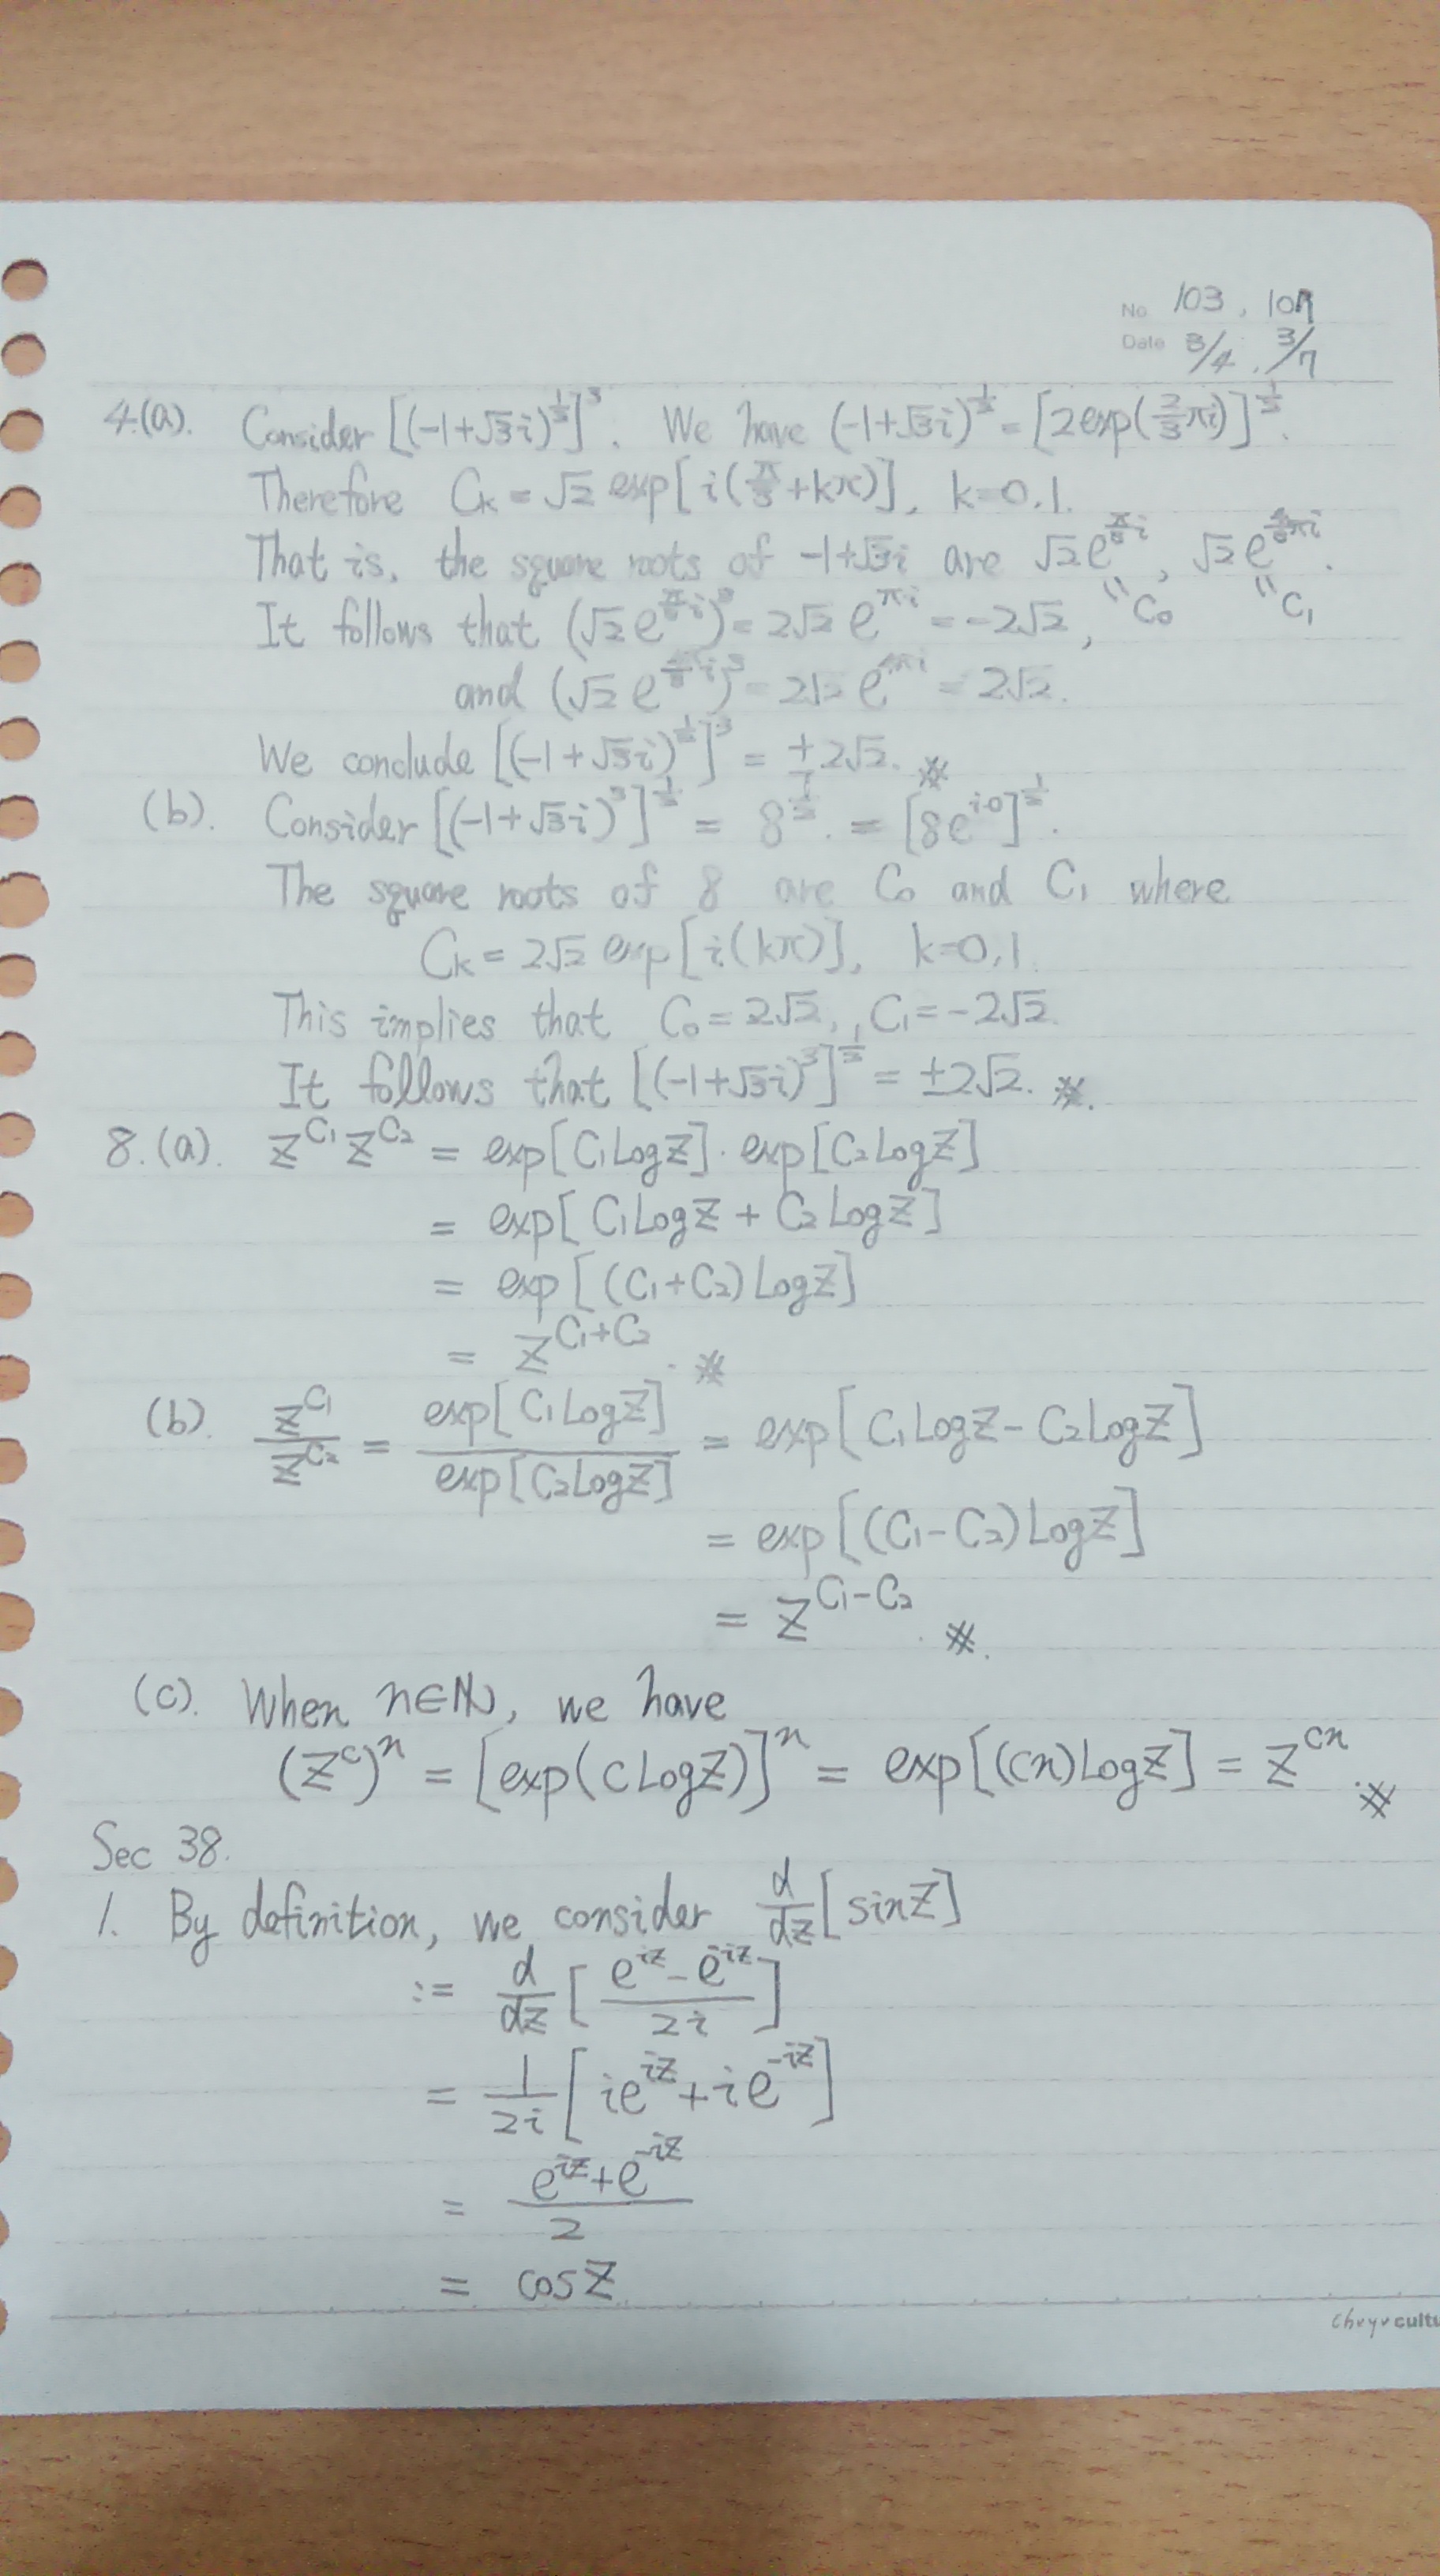 No. 103, 107
Date 3/4, 3/7
4.(a). Consider [(-1+√3i)^{1/2}]^3. We have (-1+√3i)^{1/2} = [2exp(2/3 πi)]^{1/2}.
Therefore C_k = √2 exp[i(π/3+kπ)], k=0,1.
That is, the square roots of -1+√3i are √2e^{π/3 i}, √2e^{4/3 πi}.
" C_0 " C_1
It follows that (√2e^{π/3 i})^3 = 2√2 e^{πi} = -2√2,
and (√2e^{4π/3 i})^3 = 2√2 e^{4πi} = 2√2.
We conclude [(-1+√3i)^{1/2}]^3 = ±2√2. ※
(b). Consider [(-1+√3i)^3]^{1/2} = 8^{1/2}. = [8e^{i0}]^{1/2}.
The square roots of 8 are C_0 and C_1 where
C_k = 2√2 exp[i(kπ)], k=0,1.
This implies that C_0 = 2√2, C_1 = -2√2.
It follows that [(-1+√3i)^3]^{1/2} = ±2√2. ※.
8.(a). z^{C_1} z^{C_2} = exp[C_1 Log z]·exp[C_2 Log z]
= exp[C_1 Log z + C_2 Log z]
= exp[(C_1+C_2) Log z]
= z^{C_1+C_2}. ※
(b). z^{C_1}/z^{C_2} = exp[C_1 Log z]/exp[C_2 Log z] = exp[C_1 Log z - C_2 Log z]
= exp[(C_1-C_2) Log z]
= z^{C_1-C_2}. ※.
(c). When n∈ℕ, we have
(z^c)^n = [exp(c Log z)]^n = exp[(cn) Log z] = z^{cn}. ※
Sec 38.
1. By definition, we consider d/dz [sin z]
:= d/dz [(e^{iz} - e^{-iz})/2i]
= 1/2i [ie^{iz} + ie^{-iz}]
= (e^{iz} + e^{-iz})/2
= cos z